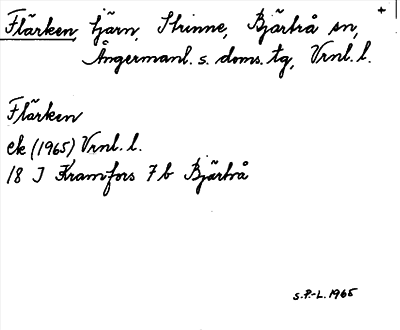 Flärken, tjärn, Strinne, Bjärtrå sn, +
Ångermanl. s. doms. tg, Vrnl. l.
Flärken
ek (1965) Vrnl. l.
18 J Kramfors 7 b Bjärtrå
S.P.-L. 1965